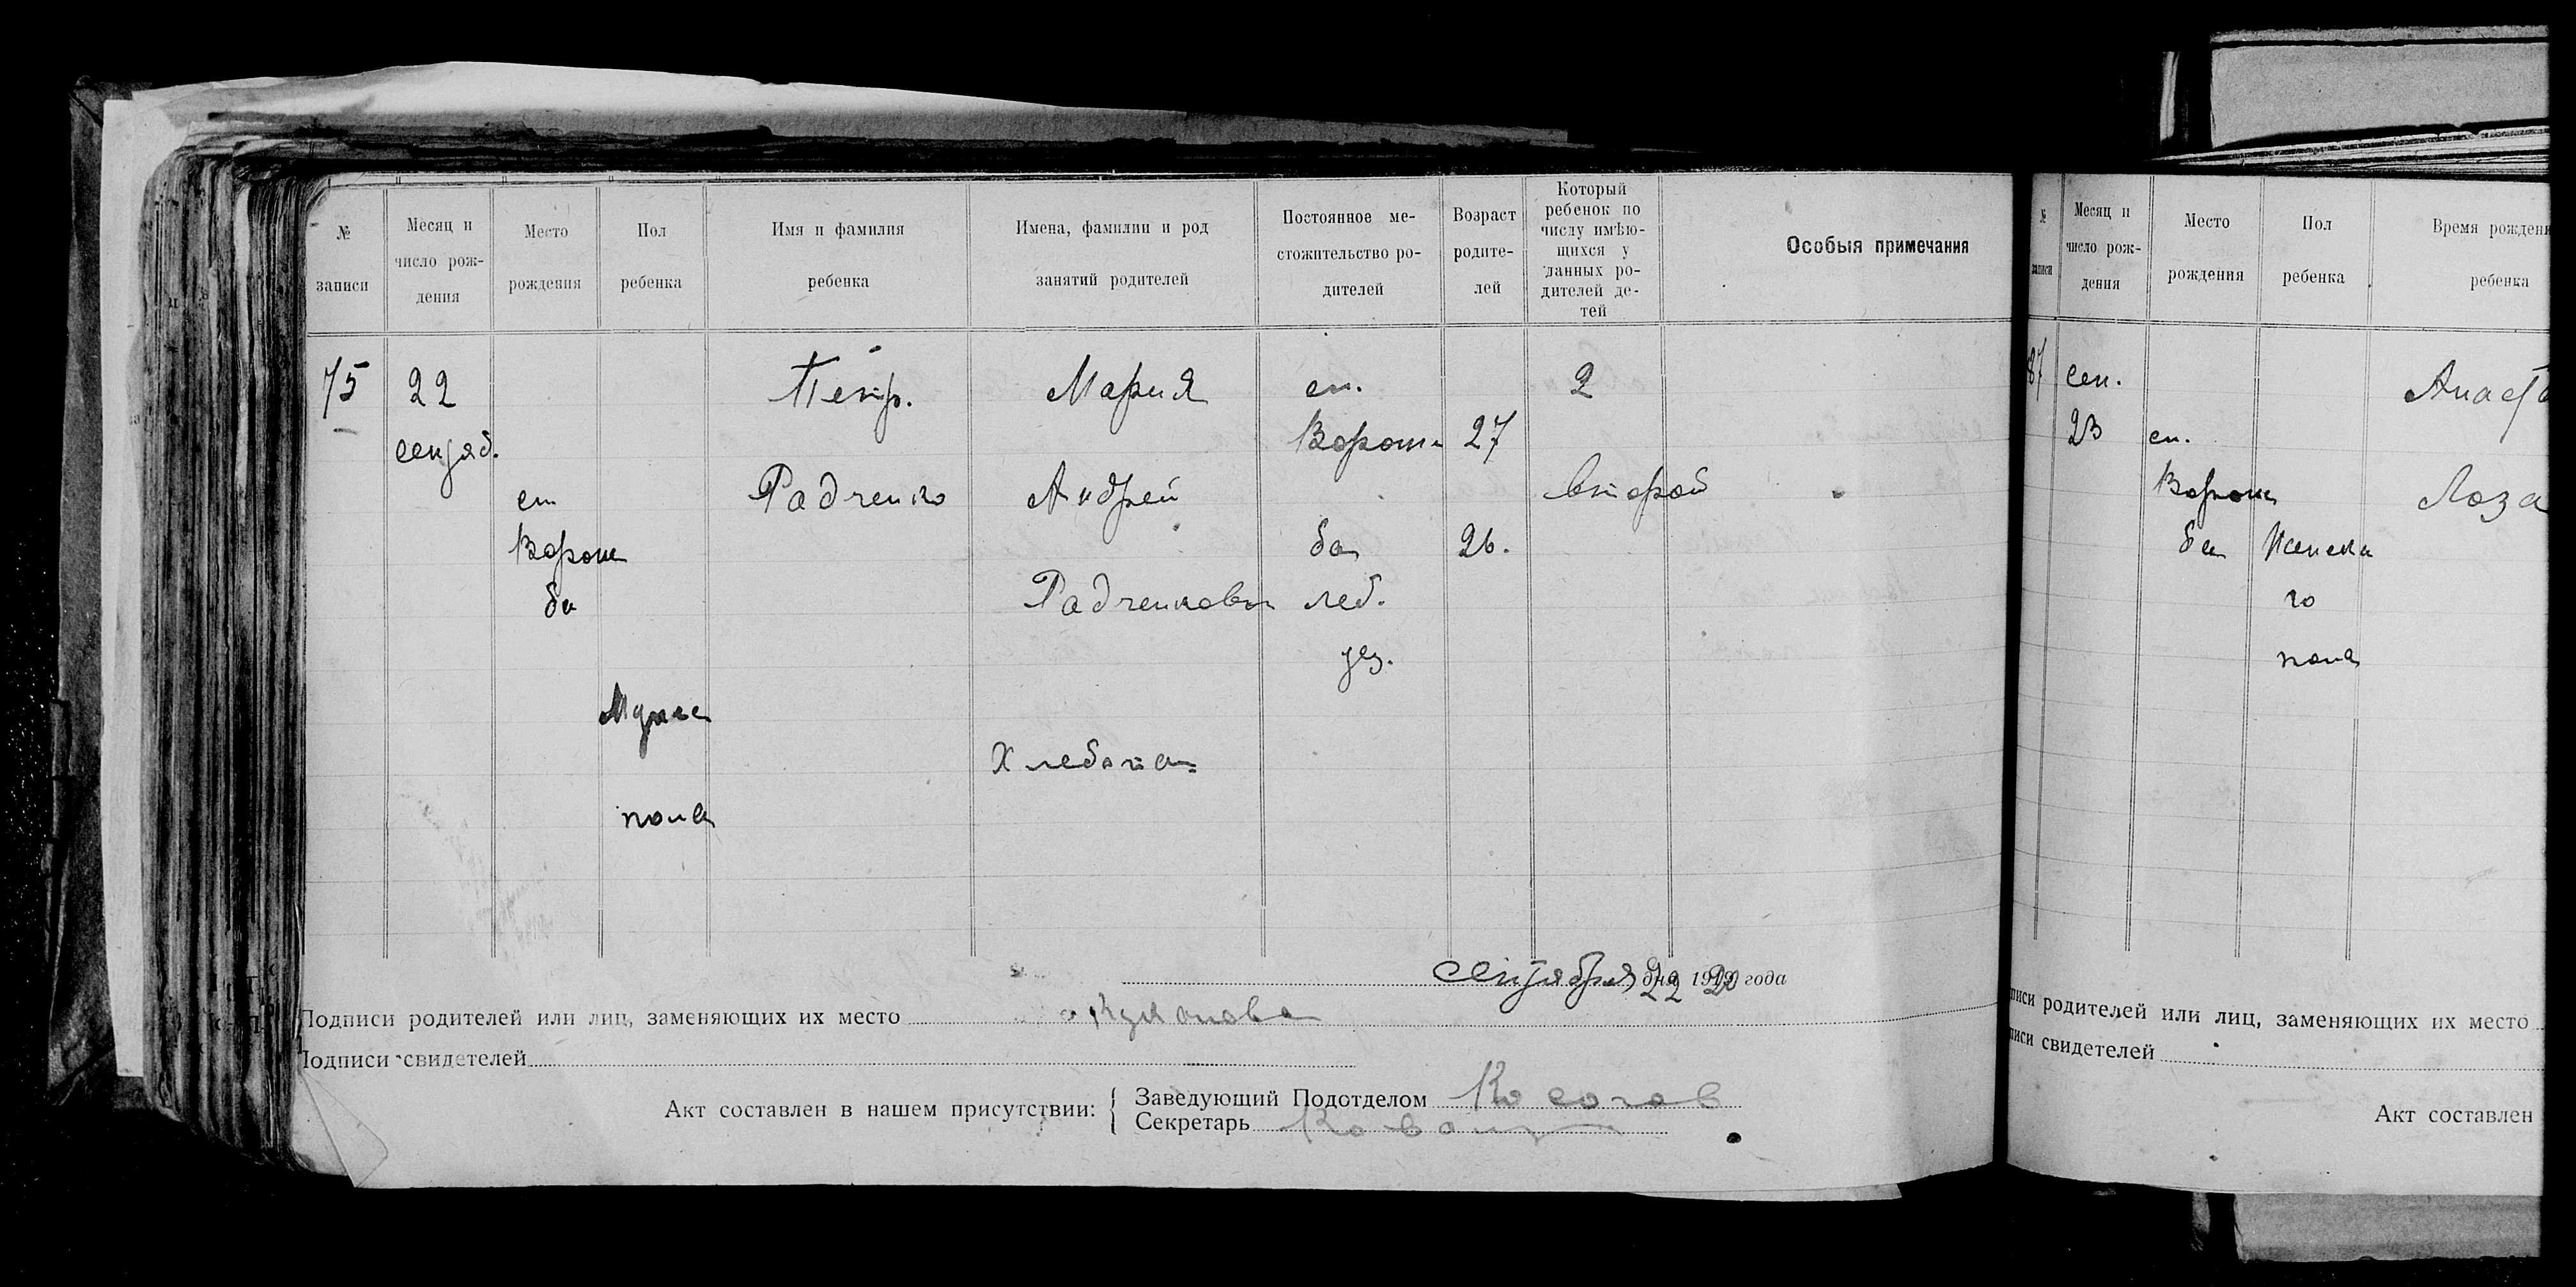 № записи
Месяц и число рождения
Место рождения
Пол ребенка
Имя и фамилия ребенка
Имена, фамилии и род занятий родителей
Постоянное местожительство родителей
Возраст родителей
Который ребенок по числу имѣющихся у данных родителей детей
Особыя примечания
75
22
сентяб.
ст
Ворож
ба
Мужс
пола
Петр.
Радченко
Мария
Андрей
Радченковы
Хлебопаш
ст.
Ворож
ба
леб.
уез.
27
26.
2
второй
сентября 22 дня 1920 года
Подписи родителей или лиц, заменяющих их место
Подписи свидетелей
Акт составлен в нашем присутствии:
Заведующий Подотделом
Секретарь
№ записи
Месяц и число рождения
Место рождения
Пол ребенка
Время рождени
ребенка
87
сен.
23
ст.
Ворож
ба
Женско
го
пола
Лоза
писи родителей или лиц, заменяющих их место
писи свидетелей
Акт составлен